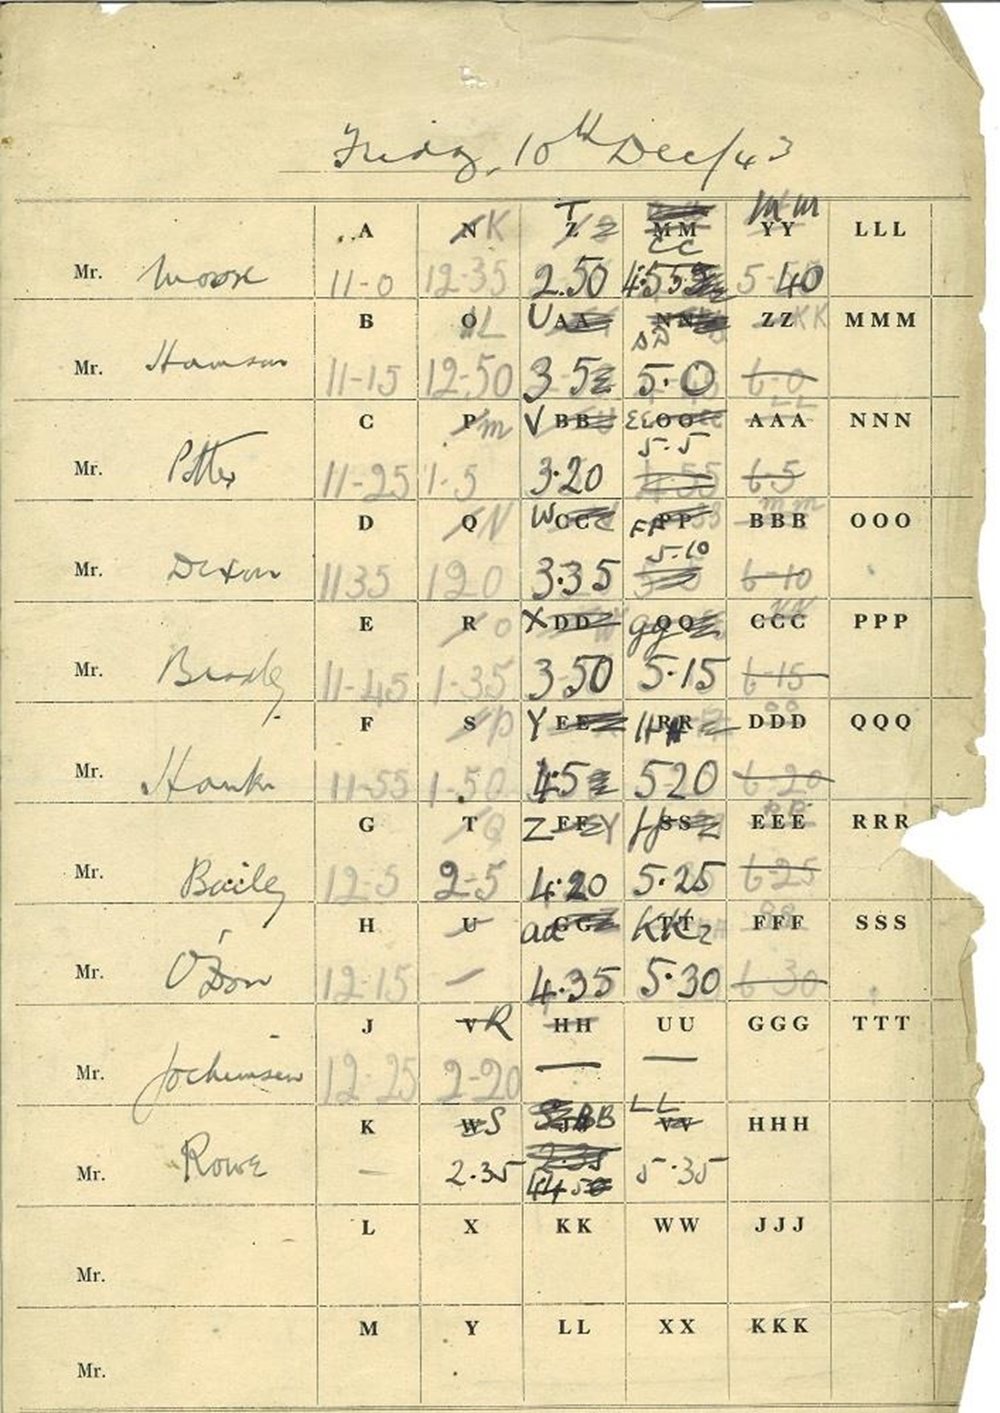 Friday, 10th Dec/43
A N K T Z MM CC YY MM LLL
Mr. Moore 11-0 12-35 2.50 4.55 5-40
B O L U AA NN DD ZZ KK MMM
Mr. 11-15 12-50 3.5 5.0 6-0
C P M V BB EE OO AAA LL NNN
Mr. Potter 11-25 1-5 3.20 5.5 6-5
D Q N W CC FF PP BBB MM OOO
Mr. Dixon 11 35 1 20 3.35 5.10 6-10
E R O X DD GG QQ CCC NN PPP
Mr. Bradley 11-45 1-35 3.50 5.15 6-15
F S P Y EE HH RR DDD OO QQQ
Mr. 11-55 1-50 4.5 5 20 6-20
G T Q Z FF Y JJ SS EEE PP RRR
Mr. Bailey 12-5 2-5 4.20 5.25 6-25
H U aa GG KK TT FFF QQ SSS
Mr. 12-15 — 4.35 5.30 6-30
J V R HH UU GGG TTT
Mr. Jochimsen 12-25 2-20 — —
K W S JJ BB LL VV HHH
Mr. Rowe — 2.35 5.35
L X KK WW JJJ
Mr.
M Y LL XX KKK
Mr.